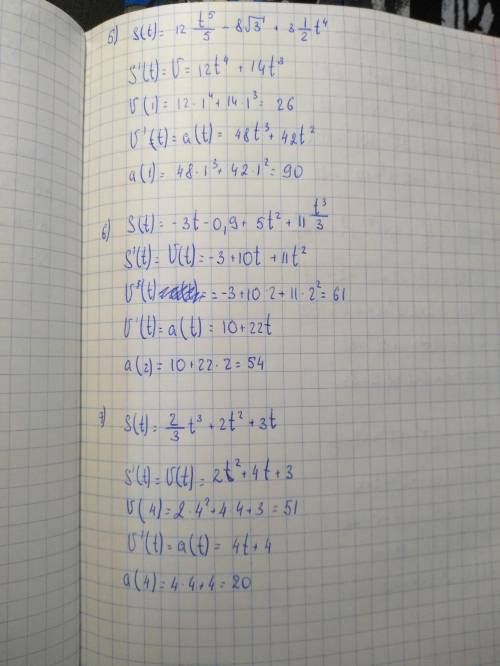 5) S(t) = 12 t⁵/5 - 8√3 + 3 1/2 t⁴
S'(t) = V = 12t⁴ + 14t³
V(1) = 12·1⁴ + 14·1³ = 26
V'(t) = a(t) = 48t³ + 42t²
a(1) = 48·1³ + 42·1² = 90
6) S(t) = -3t - 0,9 + 5t² + 11 t³/3
S'(t) = V(t) = -3 + 10t + 11t²
= -3 + 10·2 + 11·2² = 61
V'(t) = a(t) = 10 + 22t
a(2) = 10 + 22·2 = 54
7) S(t) = 2/3 t³ + 2t² + 3t
S'(t) = V(t) = 2t² + 4t + 3
V(4) = 2·4² + 4·4 + 3 = 51
V'(t) = a(t) = 4t + 4
a(4) = 4·4 + 4 = 20